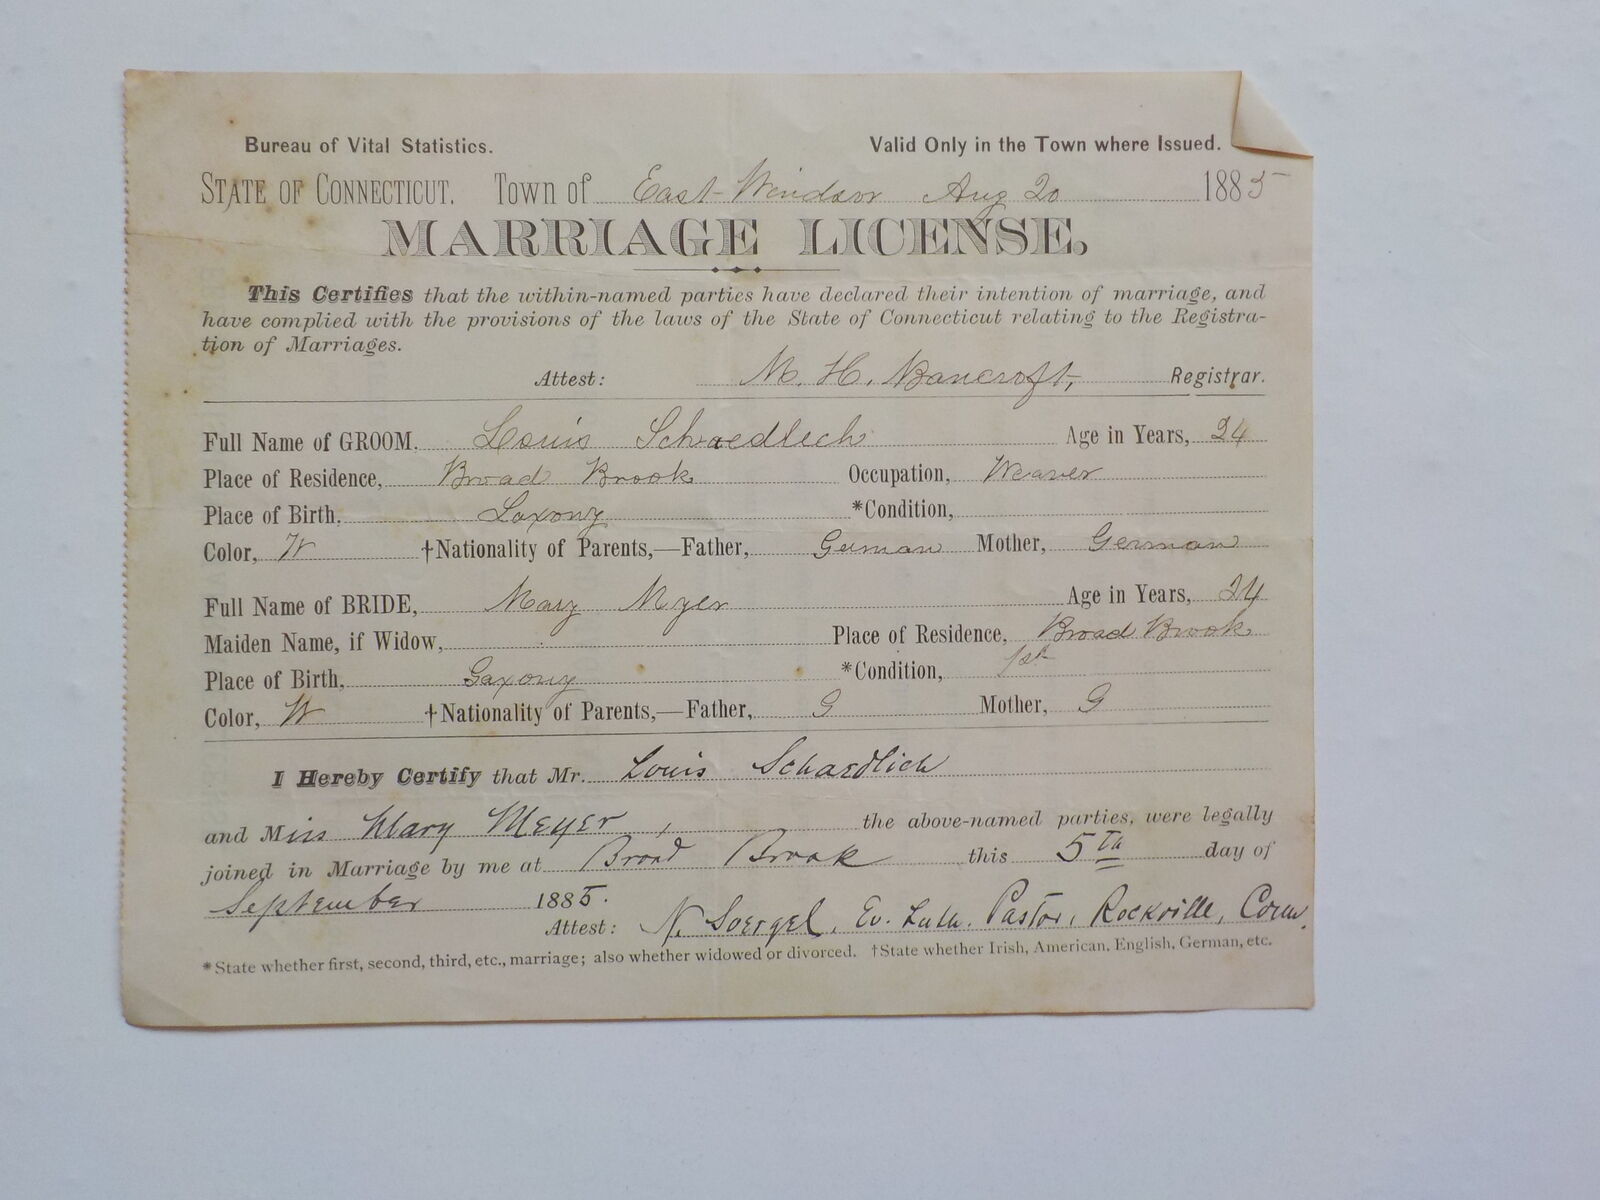 Bureau of Vital Statistics. Valid Only in the Town where Issued.
STATE OF CONNECTICUT. Town of East Windsor Aug 20 1885
MARRIAGE LICENSE.
This Certifies that the within-named parties have declared their intention of marriage, and
have complied with the provisions of the laws of the State of Connecticut relating to the Registra-
tion of Marriages.
Attest: M. H. Bancroft, Registrar.
Full Name of GROOM. Louis Schaedlech Age in Years, 24
Place of Residence, Broad Brook Occupation, Weaver
Place of Birth, Saxony *Condition,
Color, W †Nationality of Parents,—Father, German Mother, German
Full Name of BRIDE, Mary Myer Age in Years, 24
Maiden Name, if Widow, Place of Residence, Broad Brook
Place of Birth, Saxony *Condition, 1st
Color, W †Nationality of Parents,—Father, G Mother, G
I Hereby Certify that Mr. Louis Schaedlich
and Miss Mary Meyer, the above-named parties, were legally
joined in Marriage by me at Broad Brook this 5th day of
September 1885.
Attest: N. Soergel, Ev. Luth. Pastor, Rockville, Conn.
*State whether first, second, third, etc., marriage; also whether widowed or divorced. †State whether Irish, American, English, German, etc.